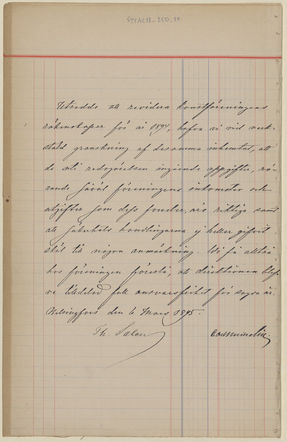 Utsedde att revidera Konstföreningens
räkenskaper för år 1894, hafva vi vid verk-
ställd granskning af desamma inhemtat, att
de uti redogörelsen ingående uppgifter, rö-
rande såväl föreningens inkomster och
utgifter som dess fonder, äro riktiga samt
att jakoladt handlingarna ej heller gifvit
skäl till någon anmärkning. Vi få alltså,
hos föreningen föreslå, att direktionen blef-
ve tilldelad full ansvarsfrihet för sagda år.
Helsingfors den 6 Mars 1895.
Th. Salen